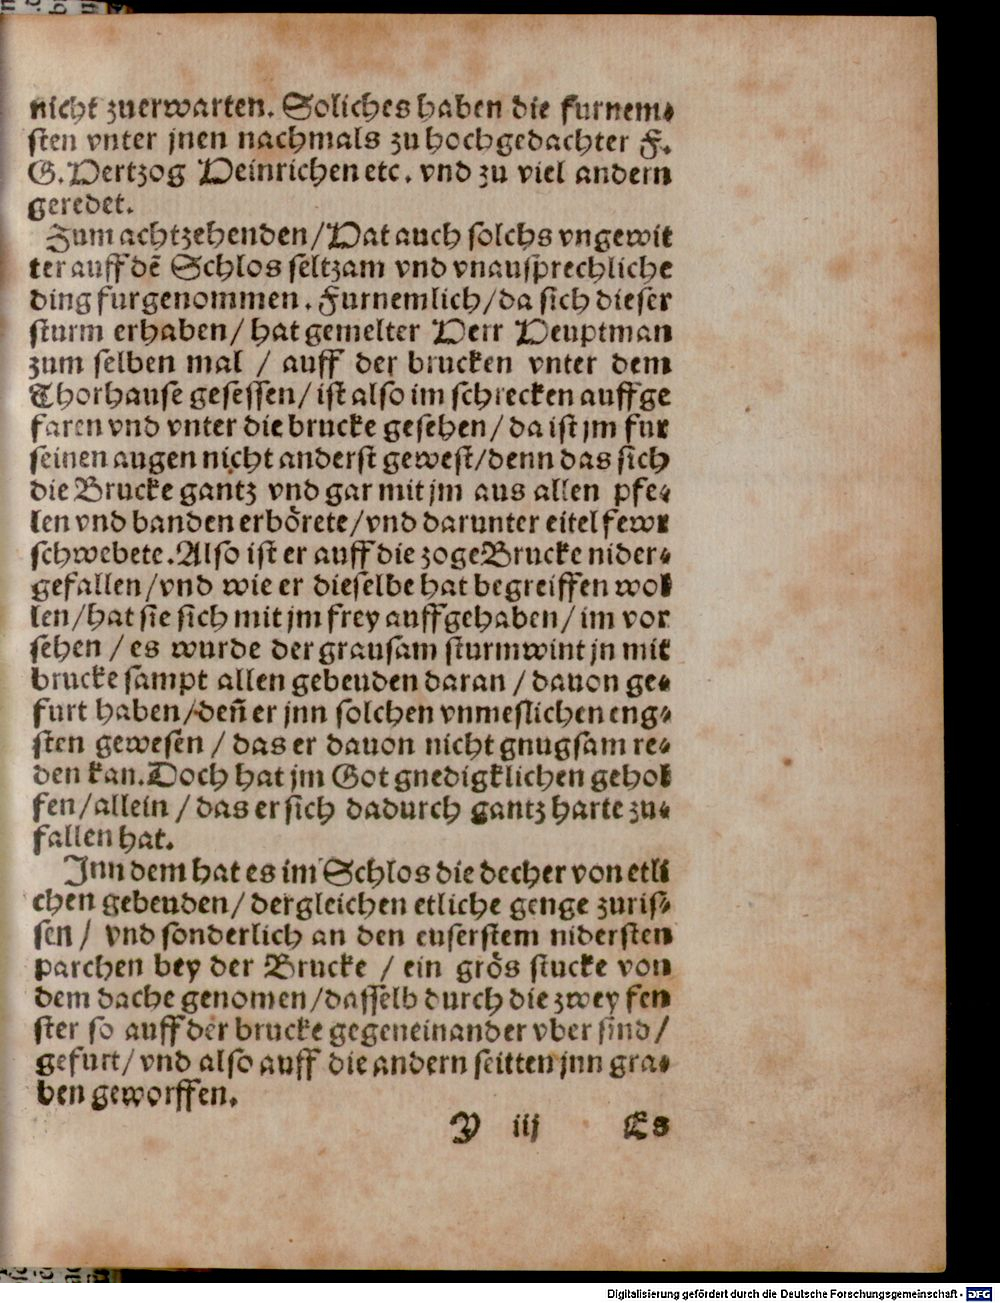 nicht zuerwarten. Soliches haben die furnem⸗
sten vnter jnen nachmals zu hochgedachter F.
G. Hertzog Heinrichen etc. vnd zu viel andern
geredet.
Zum achtzehenden/Hat auch solchs vngewit
ter auff dẽ Schlos seltzam vnd vnausprechliche
ding furgenommen. Furnemlich/da sich dieser
sturm erhaben/ hat gemelter Herr Heuptman
zum selben mal / auff der brucken vnter dem
Thorhause gesessen/ ist also im schrecken auffge
faren vnd vnter die brucke gesehen/ da ist jm fur
seinen augen nicht anderst gewest/denn das sich
die Brucke gantz vnd gar mit jm aus allen pfe⸗
len vnd banden erbörete/vnd darunter eitel fewr
schwebete. Also ist er auff die zoge Brucke nider⸗
gefallen/vnd wie er dieselbe hat begreiffen wol
len/hat sie sich mit jm frey auffgehaben/ im vor
sehen / es wurde der grausam sturmwint jn mit
brucke sampt allen gebeuden daran / dauon ge⸗
furt haben/deñ er jnn solchen vnmeslichen eng⸗
sten gewesen / das er dauon nicht gnugsam re⸗
den kan. Doch hat jm Got gnedigklichen gehol
fen/allein / das er sich dadurch gantz harte zu⸗
fallen hat.
Jnn dem hat es im Schlos die decher von etli
chen gebeuden/ dergleichen etliche genge zuris⸗
sen / vnd sonderlich an den euserstem nidersten
parchen bey der Brucke / ein grös stucke von
dem dache genomen/dasselb durch die zwey fen
ster so auff der brucke gegeneinander vber sind/
gefurt/ vnd also auff die andern seitten jnn gra⸗
ben geworffen.
B iij Es
Digitalisierung gefördert durch die Deutsche Forschungsgemeinschaft - DFG